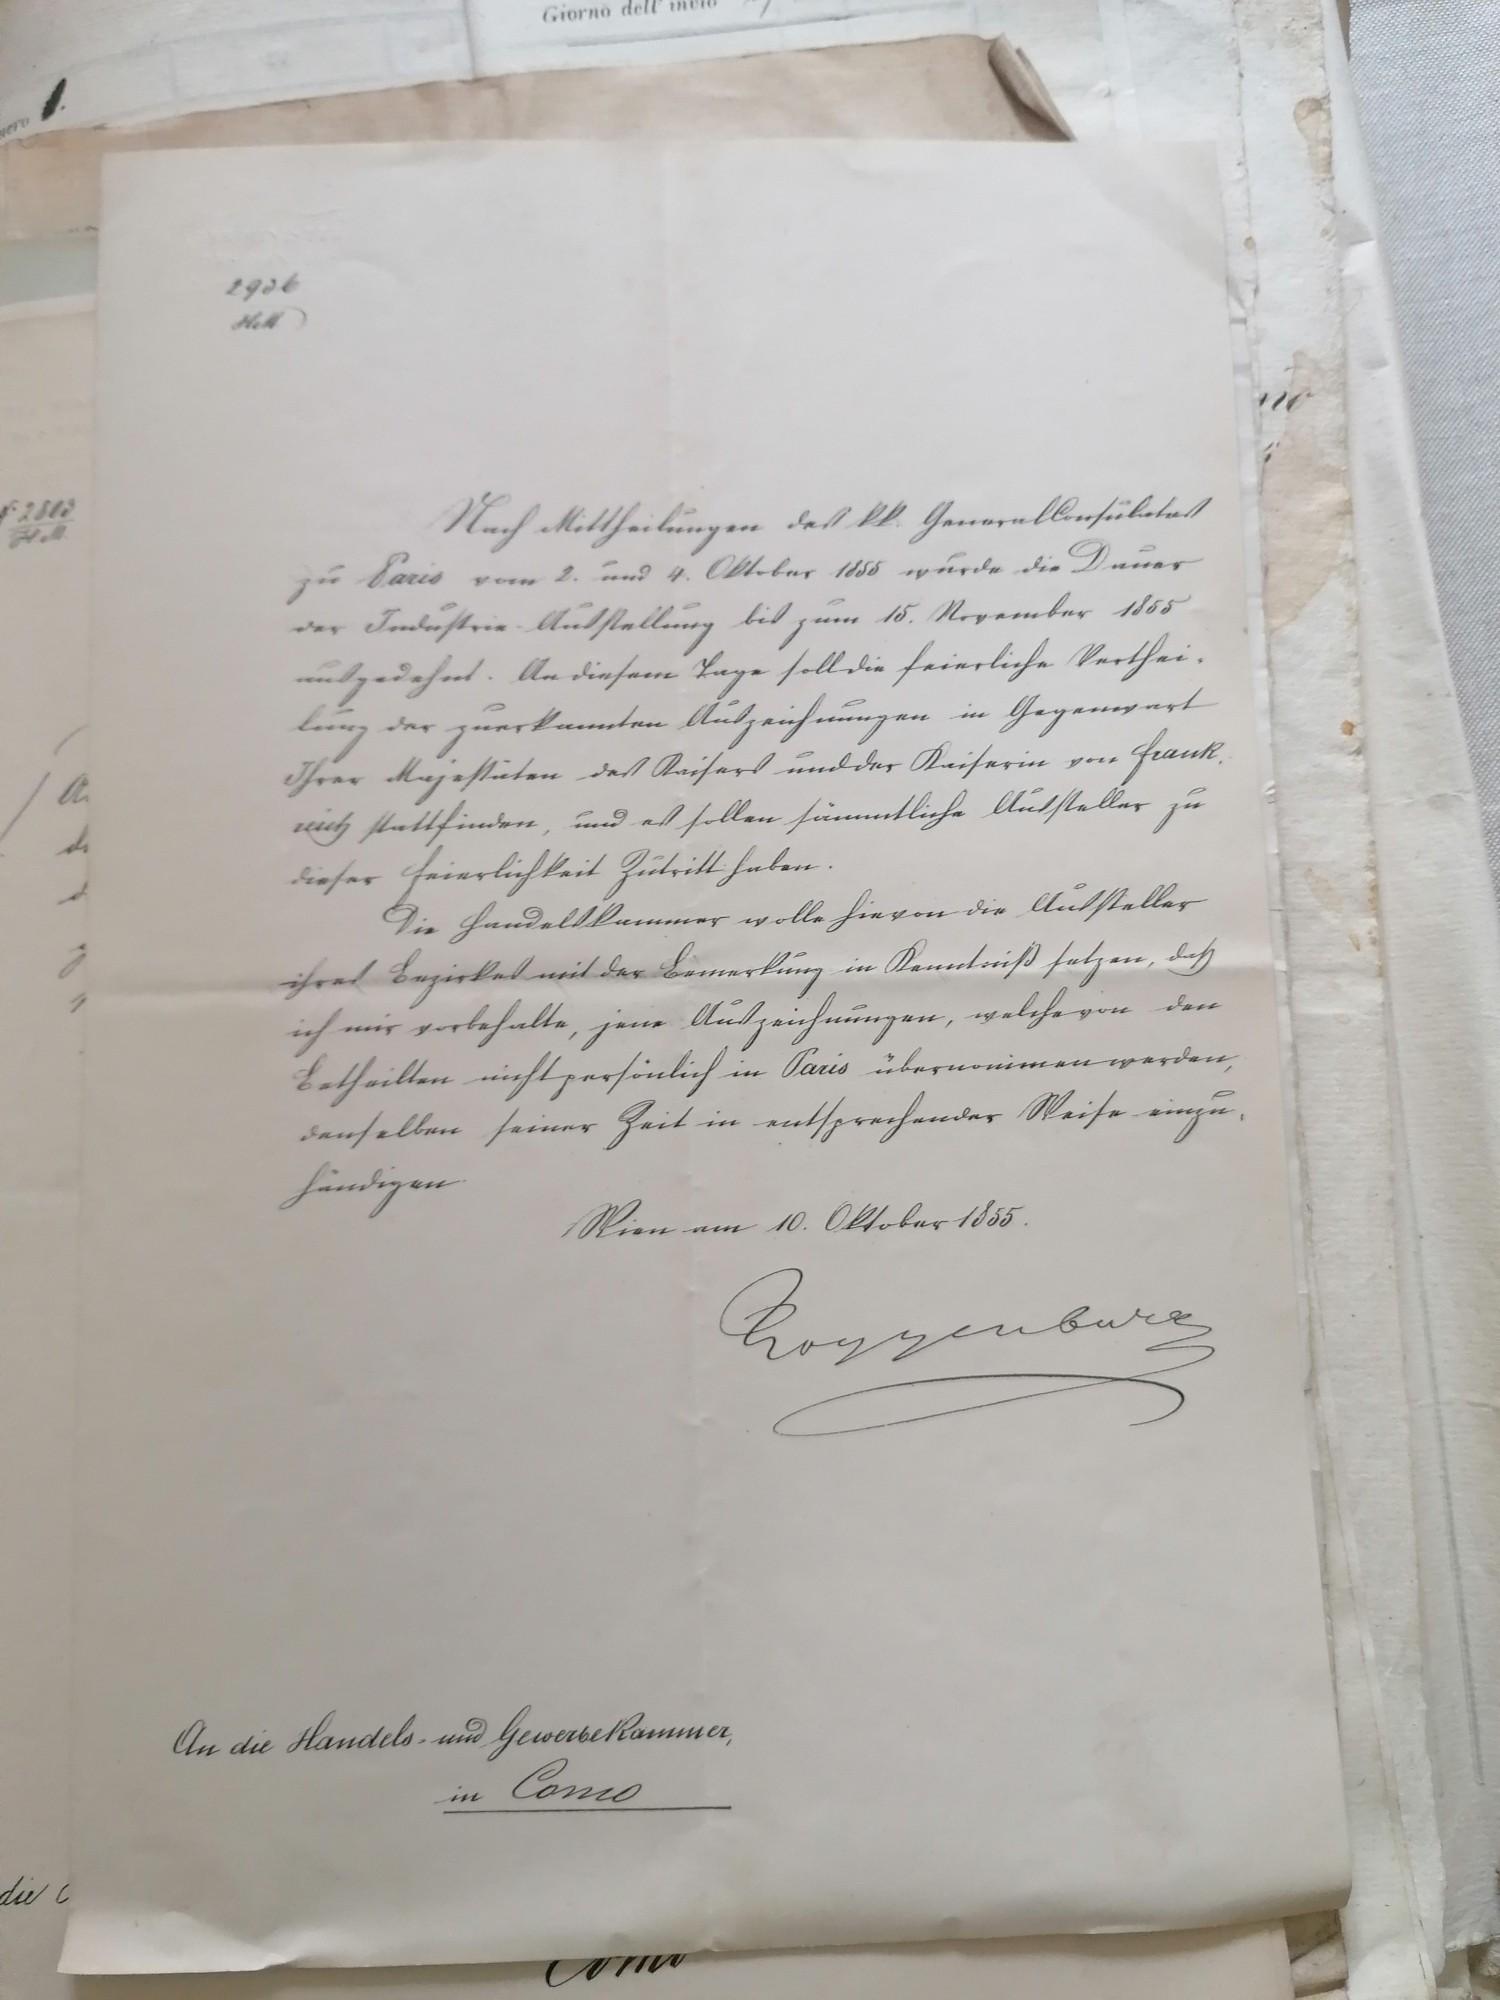 Giorno dell'invio
2936
H.M
Nach Mittheilungen des kk. GeneralConsulates
zu Paris vom 2. und 4. Oktober 1855 wurde die Dauer
der Industrie-Ausstellung bis zum 15. November 1855
ausgedehnt. An diesem Tage soll die feierliche Verthei-
lung der zuerkannten Auszeichnungen in Gegenwart
Ihrer Majestäten des Kaisers und der Kaiserin von Frank-
reich stattfinden, und es sollen sämmtliche Aussteller zu
dieser Feierlichkeit Zutritt haben.
Die Handelskammer wolle hievon die Aussteller
ihres Bezirkes mit der Bemerkung in Kenntniß setzen, daß
ich mir vorbehalte, jene Auszeichnungen, welche von den
Betheilten nicht persönlich in Paris übernommen werden,
denselben seiner Zeit in entsprechender Weise einzu-
händigen.
Wien am 10. Oktober 1855.
Toggenburg
An die Handels- und Gewerbekammer,
in Como
No 2803
H M
die
Como